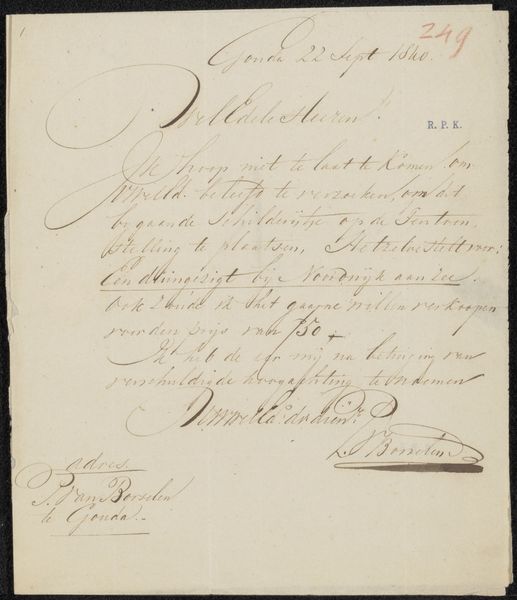 249
Gouda 22 Sept 1840.
WelEdele Heeren!
R. P. K.
Ik hoop niet te laat te komen om
UWelEd. beleefd te verzoeken, om dit
bygaande Schilderijtje op de Tentoon,
stelling te plaatsen, Hetzelve stelt voor:
Een duingezigt bij Noordwijk aan Zee
ook zoude ik het gaarne willen verkoopen
voor den prijs van ƒ50
Ik heb de eer mij na betuiging van
verschuldigde hoogachting te noemen
UwWelEd. d.w. dien.r
P. V Borselen
adres.
P. van Borselen
te Gouda.